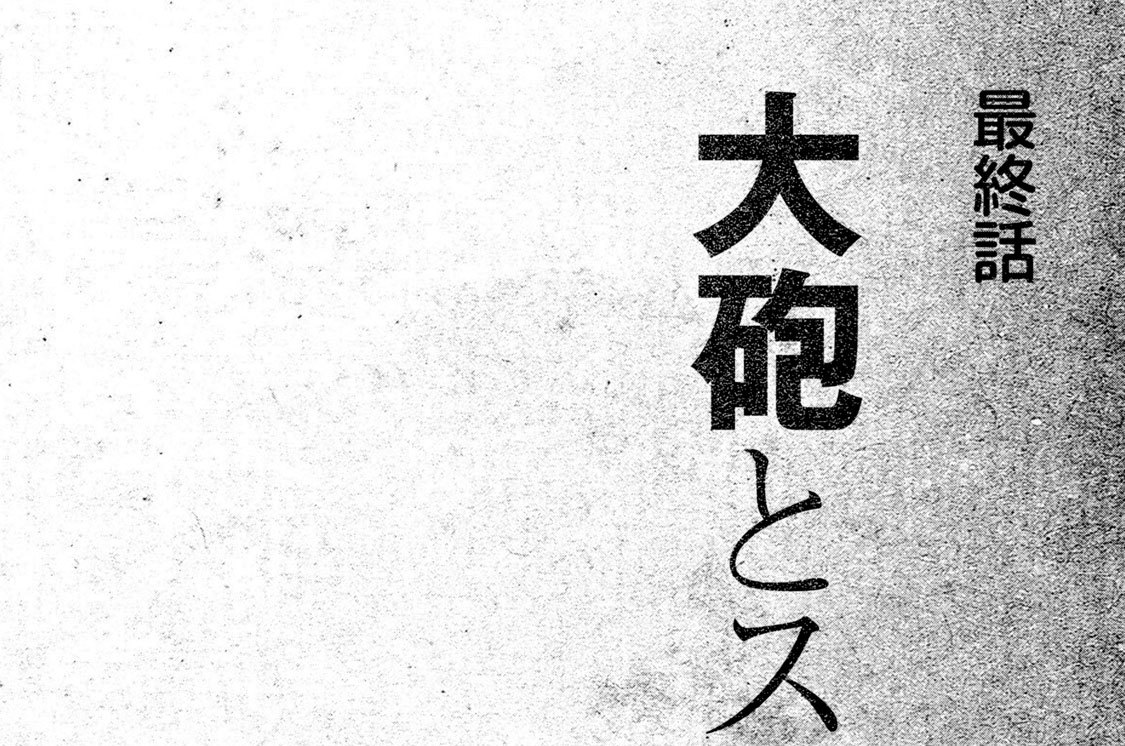 最終話
大砲とス